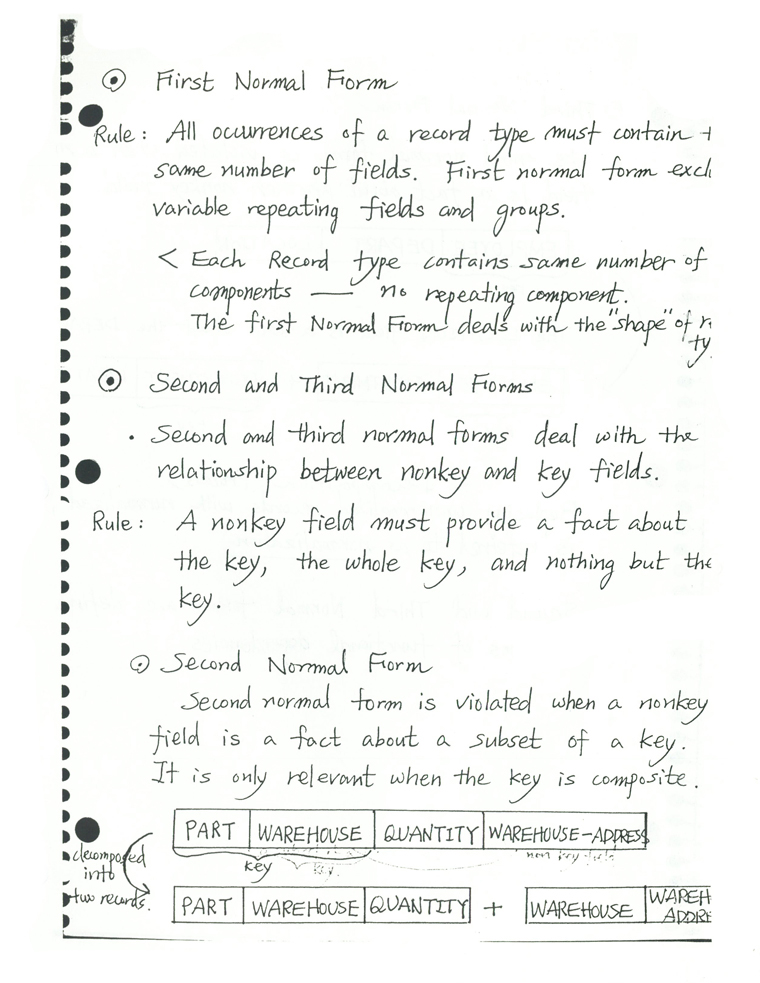 First Normal Form
Rule: All occurrences of a record type must contain
same number of fields. First normal form excl
variable repeating fields and groups.
< Each Record type contains same number of
components — no repeating component.
The first Normal Form deals with the "shape" of r
ty
Second and Third Normal Forms
• Second and third normal forms deal with the
relationship between nonkey and key fields.
Rule: A nonkey field must provide a fact about
the key, the whole key, and nothing but the
key.
Second Normal Form
Second normal form is violated when a nonkey
field is a fact about a subset of a key.
It is only relevant when the key is composite.
PART WAREHOUSE QUANTITY WAREHOUSE-ADDRESS
key
non key field
decomposed
into
two records.
PART WAREHOUSE QUANTITY + WAREHOUSE WAREH
ADDRE